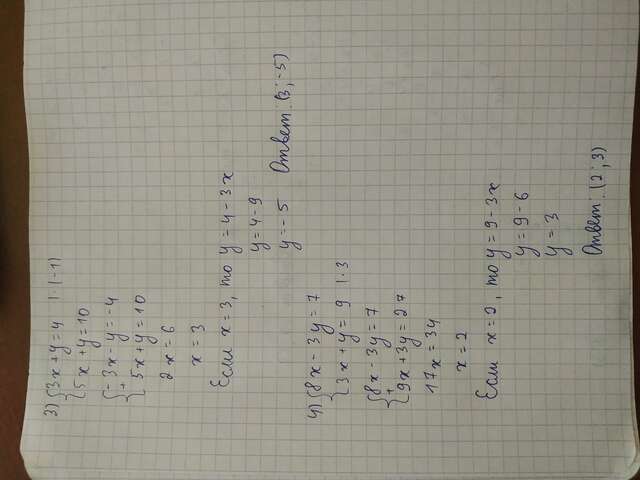 3) {3x+y=4 | ·(-1)
{5x+y=10
{-3x-y=-4
+
{5x+y=10
2x=6
x=3
Если x=3, то y=4-3x
y=4-9
y=-5 Ответ: (3; -5)
4) {8x-3y=7
{3x+y=9 | ·3
{8x-3y=7
+
{9x+3y=27
17x=34
x=2
Если x=2, то y=9-3x
y=9-6
y=3
Ответ: (2; 3)